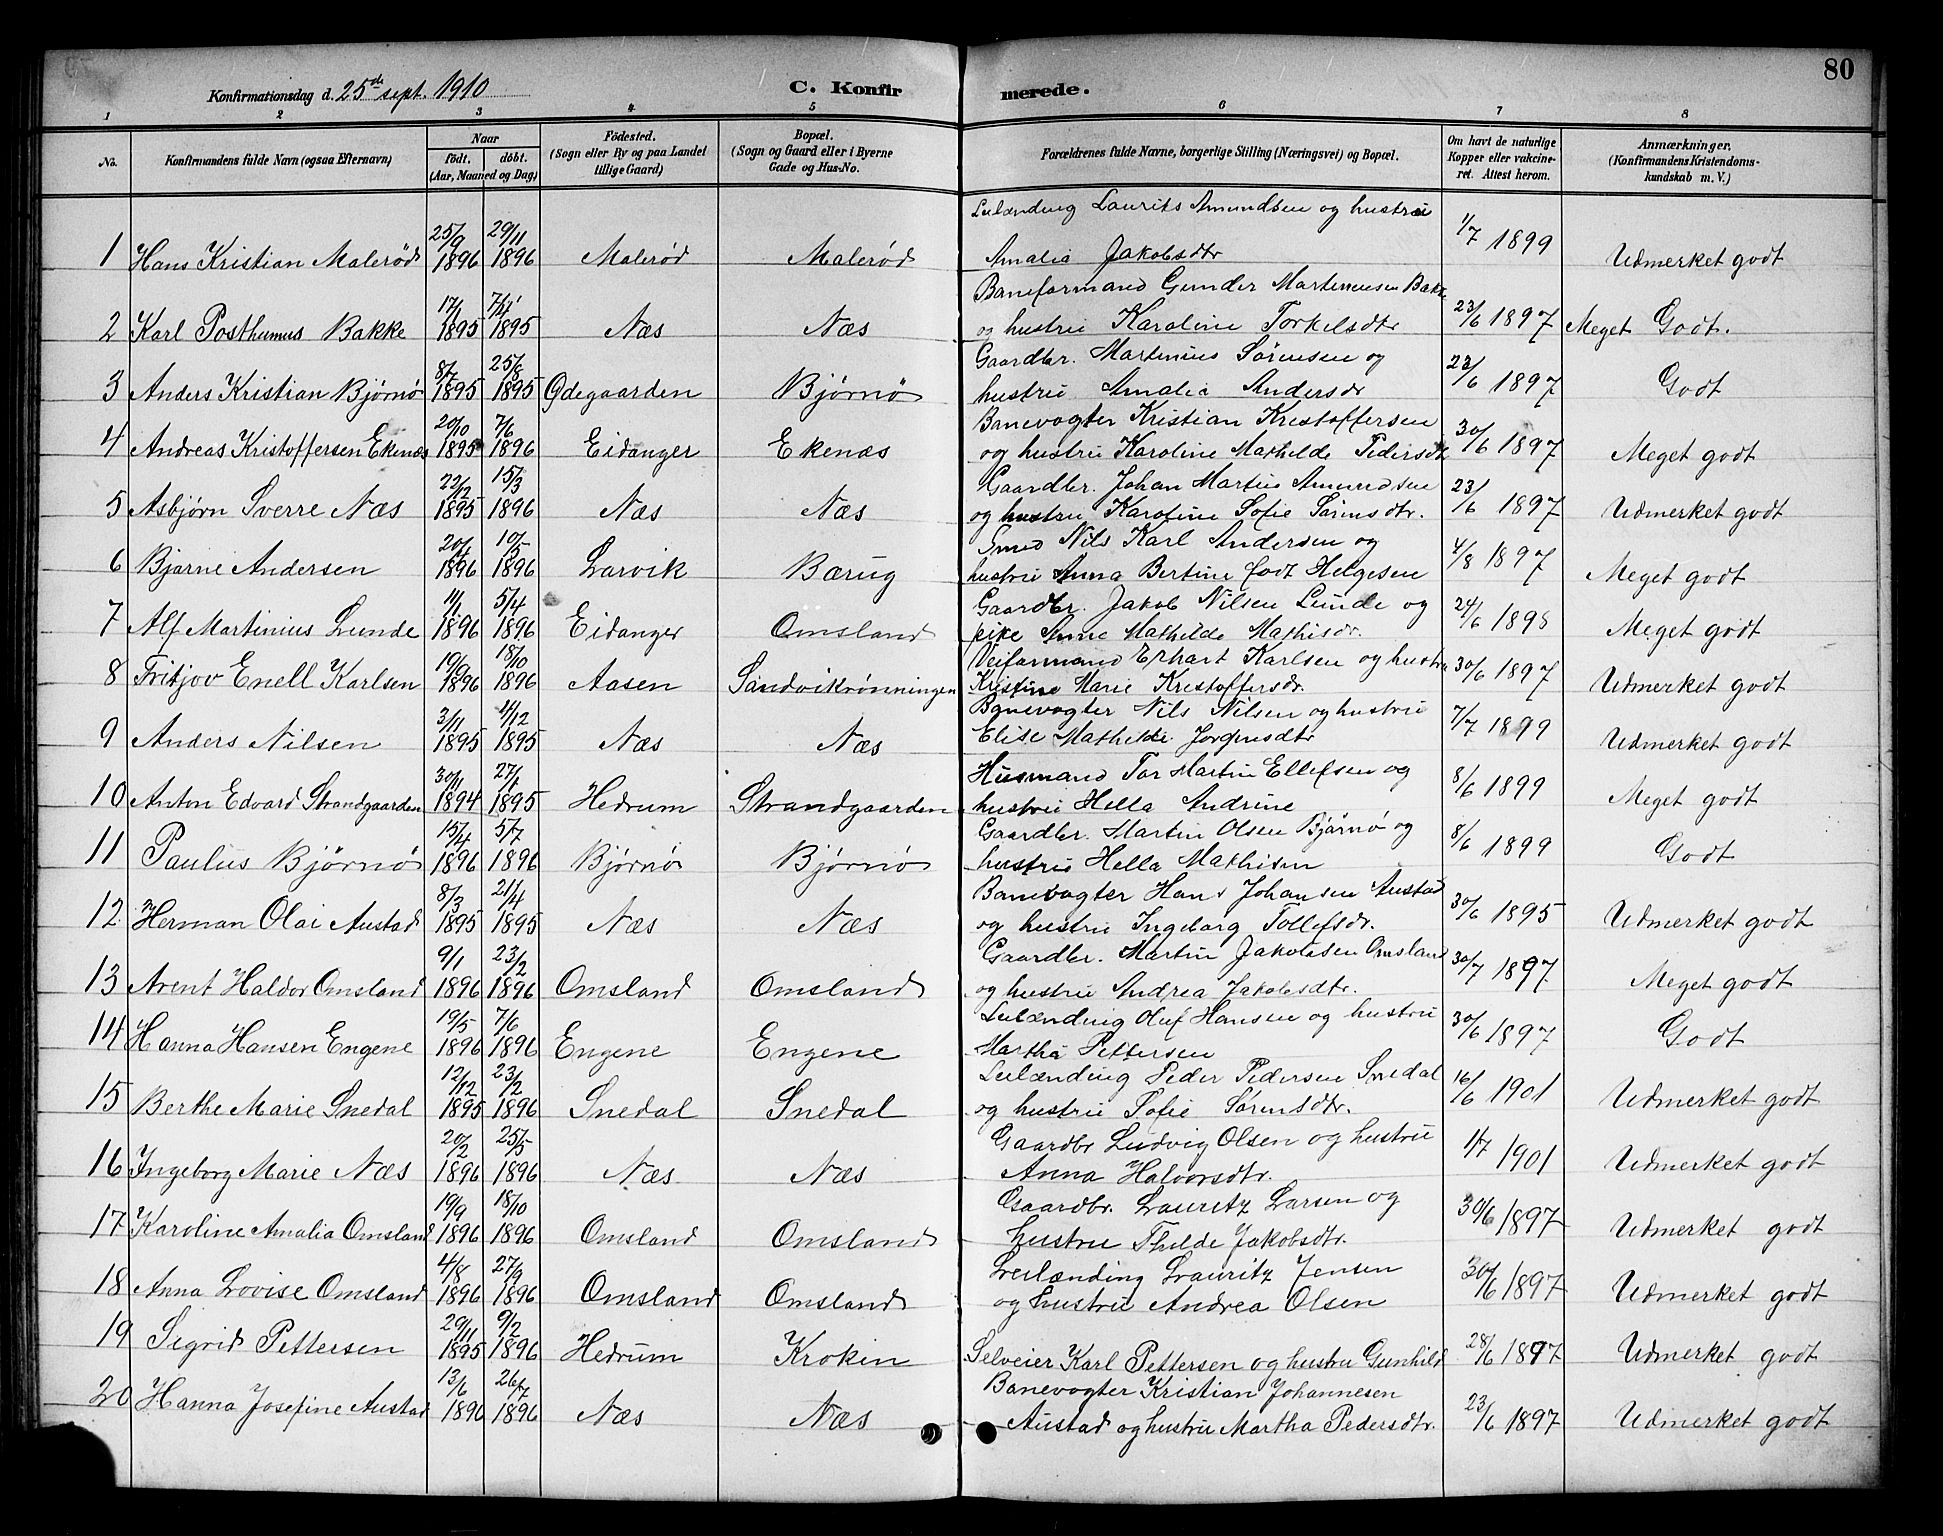 80
Konfirmationsdag d. 25de sept. 1910
C. Konfirmerede.
1 2 3 4 5 6 7 8
No.
Konfirmandens fulde Navn (ogsaa Efternavn)
Naar
født. døbt.
(Aar, Maaned og Dag)
Fødested.
(Sogn eller By og paa Landet
tillige Gaard)
Bopæl.
(Sogn og Gaard eller i Byerne
Gade og Hus-No.
Forældrenes fulde Navne, borgerlige Stilling (Næringsvei) og Bopæl.
Om havt de naturlige
Kopper eller vakcine-
ret. Attest herom.
Anmærkninger.
(Konfirmandens Kristendoms-
kundskab m. V.)
Leilænding Laurits Amundsen og hustru
1 Hans Kristian Malerød 25/9 1896 29/11 1896 Malerød Malerød Amalia Jakobsdtr 1/7 1899 Udmerket godt
Baneformand Gunder Martinusen Bakke
2 Karl Posthumus Bakke 17/1 1895 7/4 1895 Næs Næs og hustru Karoline Torkelsdtr 23/6 1897 Meget Godt.
Gaardbr. Martinius Sørensen og
3 Anders Kristian Bjørnø 8/7 1895 25/8 1895 Ødegaarden Bjørnø hustru Amalia Andersdr 23/6 1897 Godt
Banevogter Kristian Kristoffersen
4 Andreas Kristoffersen Ekenæs 20/10 1895 7/6 1896 Eidanger Ekenæs og hustru Karoline Mathilde Pedersdtr 30/6 1897 Meget godt
Gaardbr. Johan Martin Amundsen
5 Asbjørn Sverre Næs 22/12 1895 15/3 1896 Næs Næs og hustru Karoline Sofie Sørensdtr. 23/6 1897 Udmerket godt
Smed Nils Karl Andersen og
6 Bjarne Andersen 20/4 1896 10/5 1896 Larvik Barug hustru Anna Bertine født Helgesen 4/8 1897 Meget godt
Gaardbr. Jakob Nilsen Lunde og
7 Alf Martinius Lunde 11/1 1896 5/4 1896 Eidanger Omsland pike Anne Mathilde Mathisdr. 24/6 1898 Meget godt
Veiformand Erhart Karlsen og hustru
8 Fritjov Enell Karlsen 19/9 1896 18/10 1896 Aasen Sandvikrønningen Kristine Marie Kristoffersdr. 30/6 1897 Udmerket godt
Banevogter Nils Nilsen og hustru
9 Anders Nilsen 3/11 1895 4/12 1895 Næs Næs Elise Mathilde Jørginsdtr 7/7 1899 Udmerket godt
Husmand Tor Martin Ellefsen og
10 Anton Edvard Strandgaarden 30/11 1894 27/1 1895 Hedrum Strandgaarden hustru Hella Andrine 8/6 1899 Meget godt
Gaardbr. Martin Olsen Bjørnø og
11 Paulus Bjørnø 15/4 1896 5/7 1896 Bjørnø Bjørnø hustru Hella Mathisen 8/6 1899 Godt
Banevogter Hans Johansen Austad
12 Herman Olai Austad 8/3 1895 21/4 1895 Næs Næs og hustru Ingeborg Tollefsdr. 30/6 1895 Udmerket godt
Gaardbr. Martin Jakobsen Omsland
13 Arent Haldor Omsland 9/1 1896 23/2 1896 Omsland Omsland og hustru Andrea Jakobsdtr. 30/7 1897 Meget godt
Leilænding Oluf Hansen og hustru
14 Hanna Hansen Engene 19/5 1896 7/6 1896 Engene Engene Martha Pettersen 30/6 1897 Godt
Leilænding Peder Pedersen Snedal
15 Berthe Marie Snedal 12/12 1895 23/2 1896 Snedal Snedal og hustru Sofie Sørensdtr. 16/6 1901 Udmerket godt
Gaardbr Ludvig Olsen og hustru
16 Ingeborg Marie Næs 20/2 1896 25/5 1896 Næs Næs Anna Halvorsdtr. 1/7 1901 Udmerket godt
Gaardbr. Lauritz Larsen og
17 Karoline Amalia Omsland 19/9 1896 18/10 1896 Omsland Omsland hustru Thilde Jakobsdtr. 30/6 1897 Udmerket godt
Leilænding Lauritz Jensen
18 Anna Lovise Omsland 4/8 1896 27/9 1896 Omsland Omsland og hustru Andrea Olsen 30/6 1897 Udmerket godt
19 Sigrid Pettersen 29/11 1895 9/2 1896 Hedrum Krokin Selveier Karl Pettersen og hustru Gunhild 28/6 1897 Udmerket godt
Banevogter Kristian Johannesen
20 Hanna Josefine Austad 13/6 1896 26/7 1896 Næs Næs Austad og hustru Martha Pedersdtr. 23/6 1897 Udmerket godt